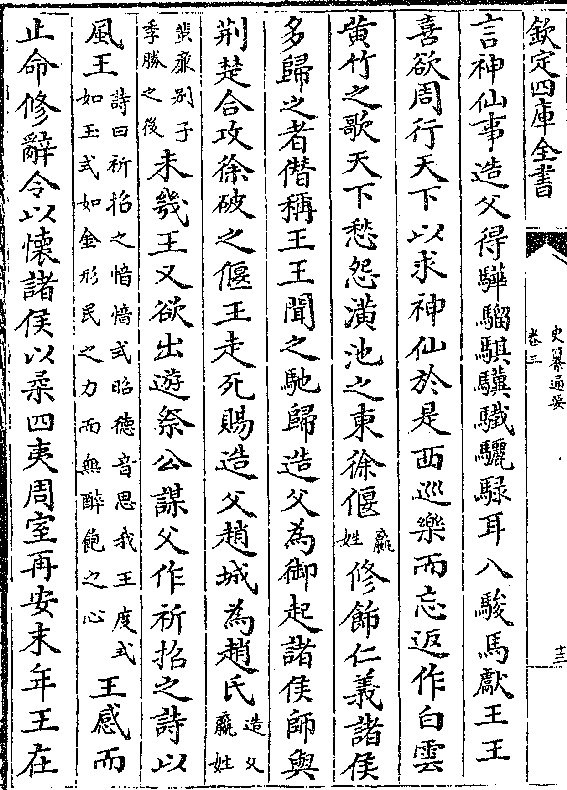 欽定四庫全書
史纂通要
卷三
十三
言神仙事造父得驊騮騏驥驖驪騄耳八駿馬獻王王
喜欲周行天下以求神仙於是西巡樂而忘返作白雲
黄竹之歌天下愁怨潢池之東徐偃嬴姓修飾仁義諸侯
多歸之者僭稱王王聞之馳歸造父為御起諸侯師與
荆楚合攻徐破之偃王走死賜造父趙城為趙氏造父嬴姓
蜚亷别子季勝之後未幾王又欲出遊祭公謀父作祈招之詩以
風王詩曰祈招之愔愔式昭德音思我王度式如玉式如金形民之力而無醉飽之心王感而
止命修辭令以懷諸侯以柔四夷周室再安末年王在